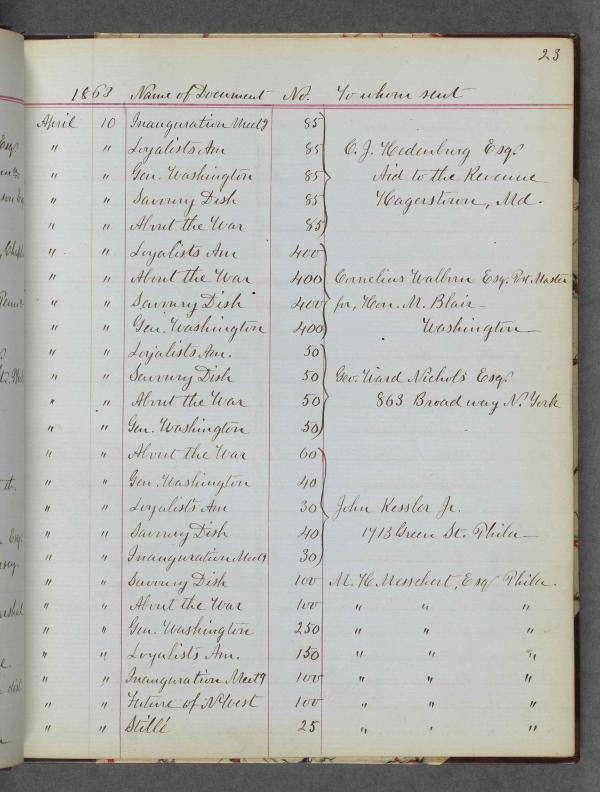 23
1863 Name of Document No. To whom sent
April 10 Inauguration Meetg 85
" " Loyalists Am 85 C. J. Hedenburg Esqr
" " Gen. Washington 85 Aid to the Revenue
" " Savoury Dish 85 Hagerstown, Md.
" " About the War 85
" " Loyalists Am 400
" " About the War 400 Cornelius Walborn Esq. Post Master
" " Savoury Dish 400 for, Hon. M. Blair
" " Gen. Washington 400 Washington
" " Loyalists Am. 50
" " Savoury Dish 50 Geo. Ward Nichols Esqr
" " About the War 50 863 Broadway N. York
" " Gen. Washington 50
" " About the War 60
" " Gen. Washington 40
" " Loyalists Am 30 John Kessler Jr.
" " Savoury Dish 40 1713 Green St. Phila
" " Inauguration Meetg 30
" " Savoury Dish 100 M. H. Messchert, Esqr Phila.
" " About the War 100 " " "
" " Gen. Washington 250 " " "
" " Loyalists Am. 150 " " "
" " Inauguration Meetg 100 " " "
" " Future of N. West 100 " " "
" " Stillé 25 " " "